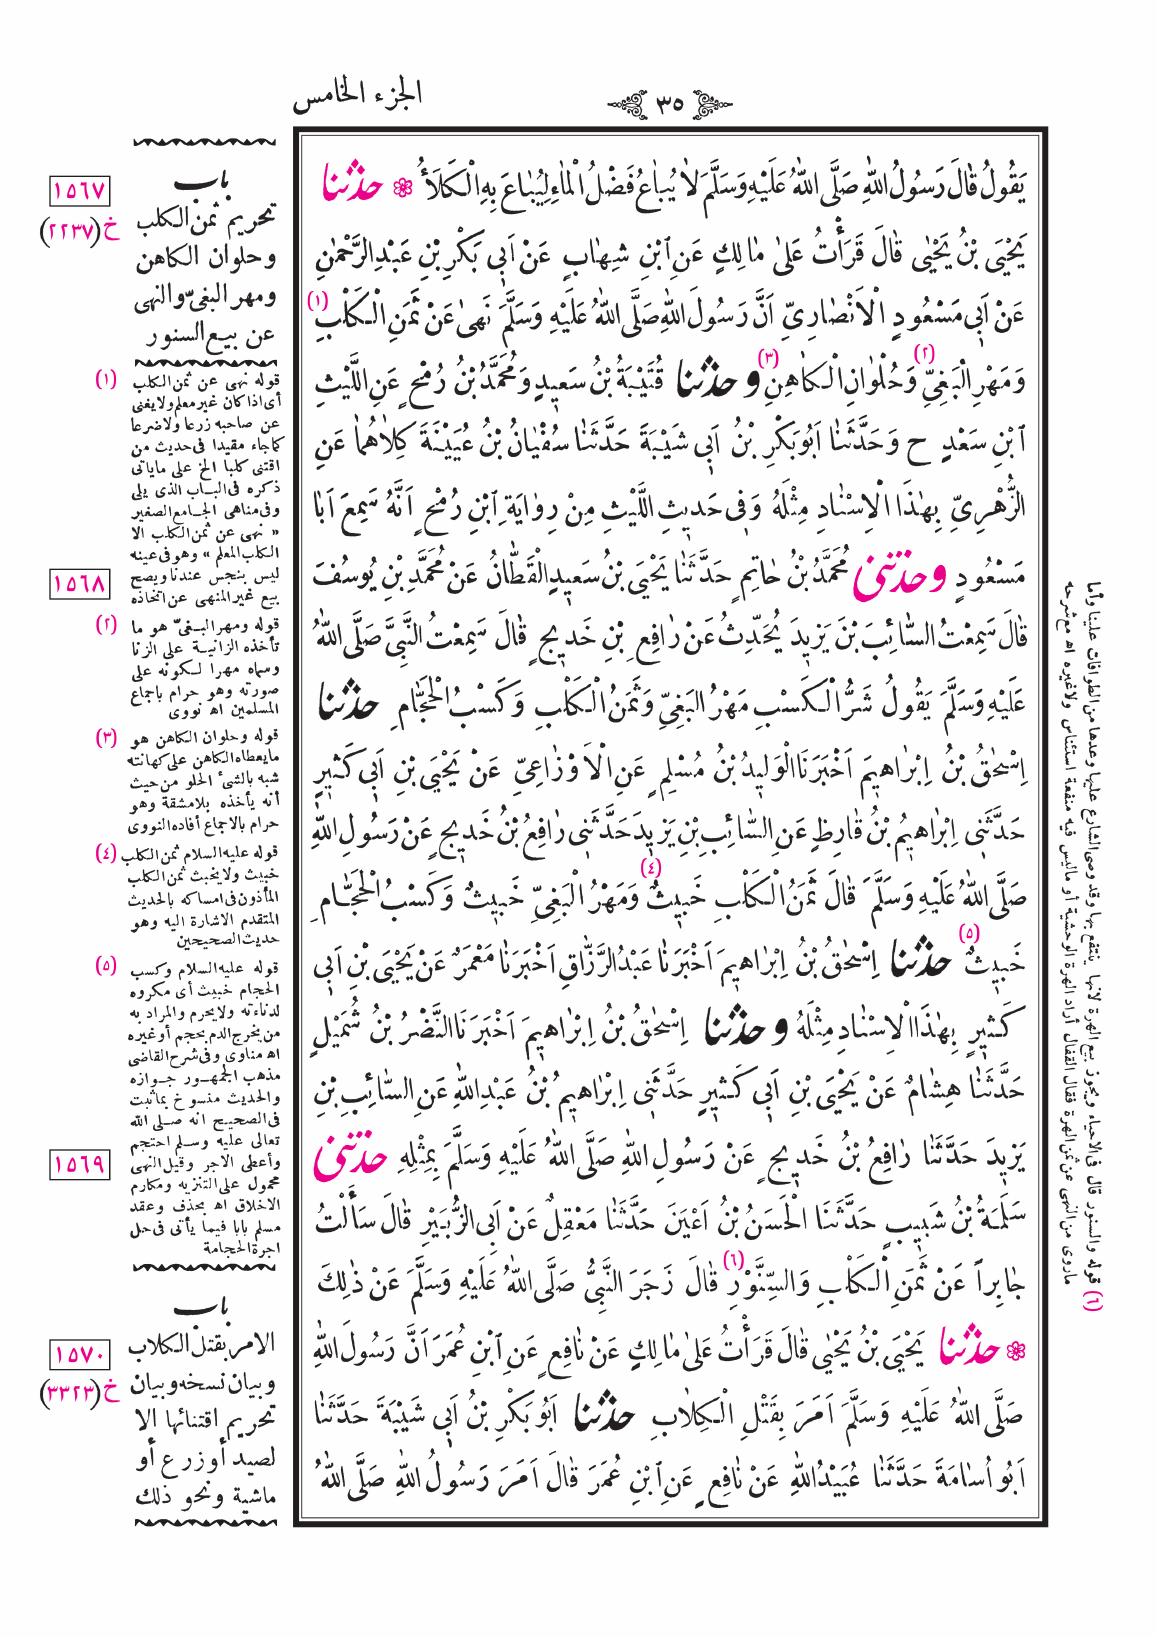 الجزء الخامس
٣٥
يَقُولُ قَالَ رَسُولُ اللّٰهِ صَلَّى اللّٰهُ عَلَيْهِ وَسَلَّمَ لَا يُبَاعُ فَضْلُ الْمَاءِ لِيُبَاعَ بِهِ الْكَلَأُ ❁ حَدَّثَنَا
يَحْيَى بْنُ يَحْيٰى قَالَ قَرَأْتُ عَلٰى مَالِكٍ عَنِ ابْنِ شِهَابٍ عَنْ اَبِى بَكْرِ بْنِ عَبْدِ الرَّحْمٰنِ
عَنْ اَبِى مَسْعُودٍ الْاَنْصَارِىِّ اَنَّ رَسُولَ اللّٰهِ صَلَّى اللّٰهُ عَلَيْهِ وَسَلَّمَ نَهٰى عَنْ ثَمَنِ الْكَلْبِ (١)
وَمَهْرِ الْبَغِىِّ (٢) وَحُلْوَانِ الْكَاهِنِ (٣) وحدثنا قُتَيْبَةُ بْنُ سَعِيدٍ وَمُحَمَّدُ بْنُ رُمْحٍ عَنِ اللَّيْثِ
ابْنِ سَعْدٍ ح وَحَدَّثَنَا اَبُو بَكْرِ بْنُ اَبِى شَيْبَةَ حَدَّثَنَا سُفْيَانُ بْنُ عُيَيْنَةَ كِلَاهُمَا عَنِ
الزُّهْرِىِّ بِهٰذَا الْاِسْنَادِ مِثْلَهُ وَفِى حَدِيثِ اللَّيْثِ مِنْ رِوَايَةِ ابْنِ رُمْحٍ اَنَّهُ سَمِعَ اَبَا
مَسْعُودٍ وحدثنى مُحَمَّدُ بْنُ حَاتِمٍ حَدَّثَنَا يَحْيَى بْنُ سَعِيدٍ الْقَطَّانُ عَنْ مُحَمَّدِ بْنِ يُوسُفَ
قَالَ سَمِعْتُ السَّائِبَ بْنَ يَزِيدَ يُحَدِّثُ عَنْ رَافِعِ بْنِ خَدِيجٍ قَالَ سَمِعْتُ النَّبِىَّ صَلَّى اللّٰهُ
عَلَيْهِ وَسَلَّمَ يَقُولُ شَرُّ الْكَسْبِ مَهْرُ الْبَغِىِّ وَثَمَنُ الْكَلْبِ وَكَسْبُ الْحَجَّامِ حدثنا
اِسْحٰقُ بْنُ اِبْرَاهِيمَ اَخْبَرَنَا الْوَلِيدُ بْنُ مُسْلِمٍ عَنِ الْاَوْزَاعِىِّ عَنْ يَحْيَى بْنِ اَبِى كَثِيرٍ
حَدَّثَنِى اِبْرَاهِيمُ بْنُ قَارِظٍ عَنِ السَّائِبِ بْنِ يَزِيدَ حَدَّثَنِى رَافِعُ بْنُ خَدِيجٍ عَنْ رَسُولِ اللّٰهِ
صَلَّى اللّٰهُ عَلَيْهِ وَسَلَّمَ قَالَ ثَمَنُ الْكَلْبِ خَبِيثٌ (٤) وَمَهْرُ الْبَغِىِّ خَبِيثٌ وَكَسْبُ الْحَجَّامِ
خَبِيثٌ (٥) حدثنا اِسْحٰقُ بْنُ اِبْرَاهِيمَ اَخْبَرَنَا عَبْدُ الرَّزَّاقِ اَخْبَرَنَا مَعْمَرٌ عَنْ يَحْيَى بْنِ اَبِى
كَثِيرٍ بِهٰذَا الْاِسْنَادِ مِثْلَهُ وحدثنا اِسْحٰقُ بْنُ اِبْرَاهِيمَ اَخْبَرَنَا النَّضْرُ بْنُ شُمَيْلٍ
حَدَّثَنَا هِشَامٌ عَنْ يَحْيَى بْنِ اَبِى كَثِيرٍ حَدَّثَنِى اِبْرَاهِيمُ بْنُ عَبْدِ اللّٰهِ عَنِ السَّائِبِ بْنِ
يَزِيدَ حَدَّثَنَا رَافِعُ بْنُ خَدِيجٍ عَنْ رَسُولِ اللّٰهِ صَلَّى اللّٰهُ عَلَيْهِ وَسَلَّمَ بِمِثْلِهِ حدثنى
سَلَمَةُ بْنُ شَبِيبٍ حَدَّثَنَا الْحَسَنُ بْنُ اَعْيَنَ حَدَّثَنَا مَعْقِلٌ عَنْ اَبِى الزُّبَيْرِ قَالَ سَأَلْتُ
جَابِراً عَنْ ثَمَنِ الْكَلْبِ وَالسِّنَّوْرِ (٦) قَالَ زَجَرَ النَّبِىُّ صَلَّى اللّٰهُ عَلَيْهِ وَسَلَّمَ عَنْ ذٰلِكَ
❁ حدثنا يَحْيَى بْنُ يَحْيٰى قَالَ قَرَأْتُ عَلٰى مَالِكٍ عَنْ نَافِعٍ عَنِ ابْنِ عُمَرَ اَنَّ رَسُولَ اللّٰهِ
صَلَّى اللّٰهُ عَلَيْهِ وَسَلَّمَ اَمَرَ بِقَتْلِ الْكِلَابِ حدثنا اَبُو بَكْرِ بْنُ اَبِى شَيْبَةَ حَدَّثَنَا
اَبُو اُسَامَةَ حَدَّثَنَا عُبَيْدُ اللّٰهِ عَنْ نَافِعٍ عَنِ ابْنِ عُمَرَ قَالَ اَمَرَ رَسُولُ اللّٰهِ صَلَّى اللّٰهُ
١٥٦٧
خ (٢٢٣٧)
باب
تحريم ثمن الكلب
وحلوان الكاهن
ومهر البغىّ والنهى
عن بيع السنور
(١) قوله نهى عن ثمن الكلب
أى اذا كان غير معلم ولا يغنى
عن صاحبه زرعا ولا ضرعا
كما جاء مقيدا فى حديث من
اقتنى كلبا الخ على ما يأتى
ذكره فى الباب الذى يلى
وفى مناهى الجامع الصغير
« نهى عن ثمن الكلب الا
الكلب المعلم » وهو فى عينه
ليس بنجس عندنا ويصح
بيع غير المنهى عن اتخاذه
١٥٦٨
(٢) قوله ومهر البغىّ هو ما
تأخذه الزانية على الزنا
وسماه مهرا لكونه على
صورته وهو حرام باجماع
المسلمين اه نووى
(٣) قوله وحلوان الكاهن هو
ما يعطاه الكاهن على كهانته
شبه بالشىء الحلو من حيث
أنه يأخذه بلا مشقة وهو
حرام بالاجماع أفاده النووى
(٤) قوله عليه السلام ثمن الكلب
خبيث ولا يخبث ثمن الكلب
المأذون فى امساكه بالحديث
المتقدم الاشارة اليه وهو
حديث الصحيحين
(٥) قوله عليه السلام وكسب
الحجام خبيث أى مكروه
لدناءته ولا يحرم والمراد به
من يخرج الدم بحجم أو غيره
اه مناوى وفى شرح القاضى
مذهب الجمهور جوازه
والحديث منسوخ بما ثبت
فى الصحيح انه صلى الله
تعالى عليه وسلم احتجم
وأعطى الاجر وقيل النهى
محمول على التنزيه ومكارم
الاخلاق اه بحذف وعقد
مسلم بابا فيما يأتى فى حل
اجرة الحجامة
١٥٦٩
باب
الامر بقتل الكلاب
وبيان نسخه وبيان
تحريم اقتنائها الا
لصيد أو زرع أو
ماشية ونحو ذلك
١٥٧٠
خ (٣٣٢٣)
(٦) قوله والسنور قال فى الاحياء ويجوز بيع الهرة لانها ينتفع بها وقد وصى الشارع عليها وعدها من الطوافات علينا وأما
ماروى من النهى عن ثمن الهرة فقال القفال أراد الهرة الوحشية أو ماليس فيه منفعة استئناس ولا غيره اه مع شرحه